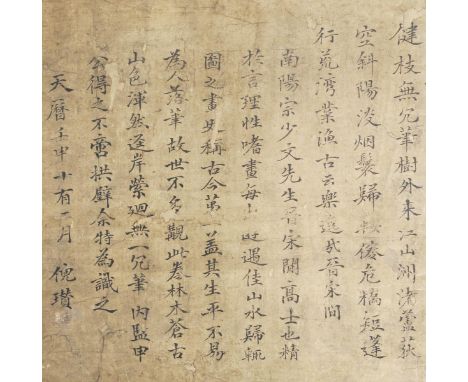 健枝無冗筆樹外來江山洲渚蘆荻
空斜陽淡烟鬟歸輕傞危檣短蓬
行荒灣業漁古云樂逸哉晉宋間
南陽宗少文先生晉宋間高士也精
於言理性嗜畫每山時遇佳山水歸輒
圖之書史稱古今第一蓋其生平不易
為人落筆故世不多覯此卷林木蒼古
山色渾然逕岸縈迴無一冗筆內監申
公得之不啻拱璧余特為識之
天曆壬申十有一月 倪瓚